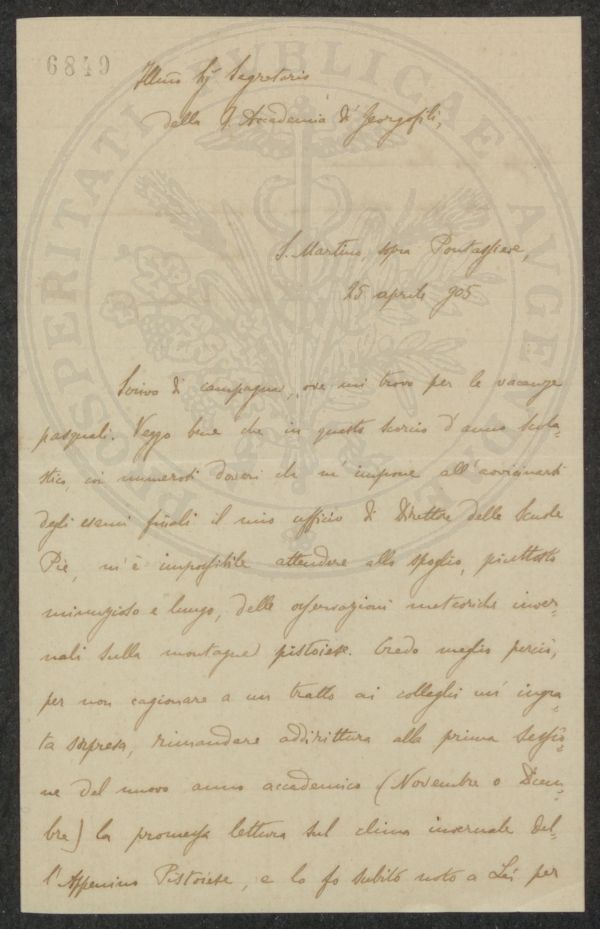 6849
PROSPERITATI PUBLICAE AUGENDAE
Illmo Sigr Segretario
della R. Accademia d' Georgofili,
S. Martino, sopra Pontassieve,
25 aprile 905
Scrivo di campagna, ove mi trovo per le vacanze
pasquali. Veggo bene che in questo scorcio d'anno scola-
stico, coi numerosi doveri che m'impone all'avvicinarsi
degli esami finali il mio ufficio di Direttore delle Scuole
Pie, m'è impossibile attendere allo spoglio, piuttosto
minuzioso e lungo, delle osservazioni meteoriche inver-
nali sulla montagna pistoiese. Credo meglio perciò,
per non cagionare a un tratto ai colleghi un'ingra-
ta sorpresa, rimandare addirittura alla prima sessio-
ne del nuovo anno accademico (Novembre o Dicem-
bre) la promessa lettura sul clima invernale del-
l'Appenino Pistoiese, e lo fo subito noto a Lei per